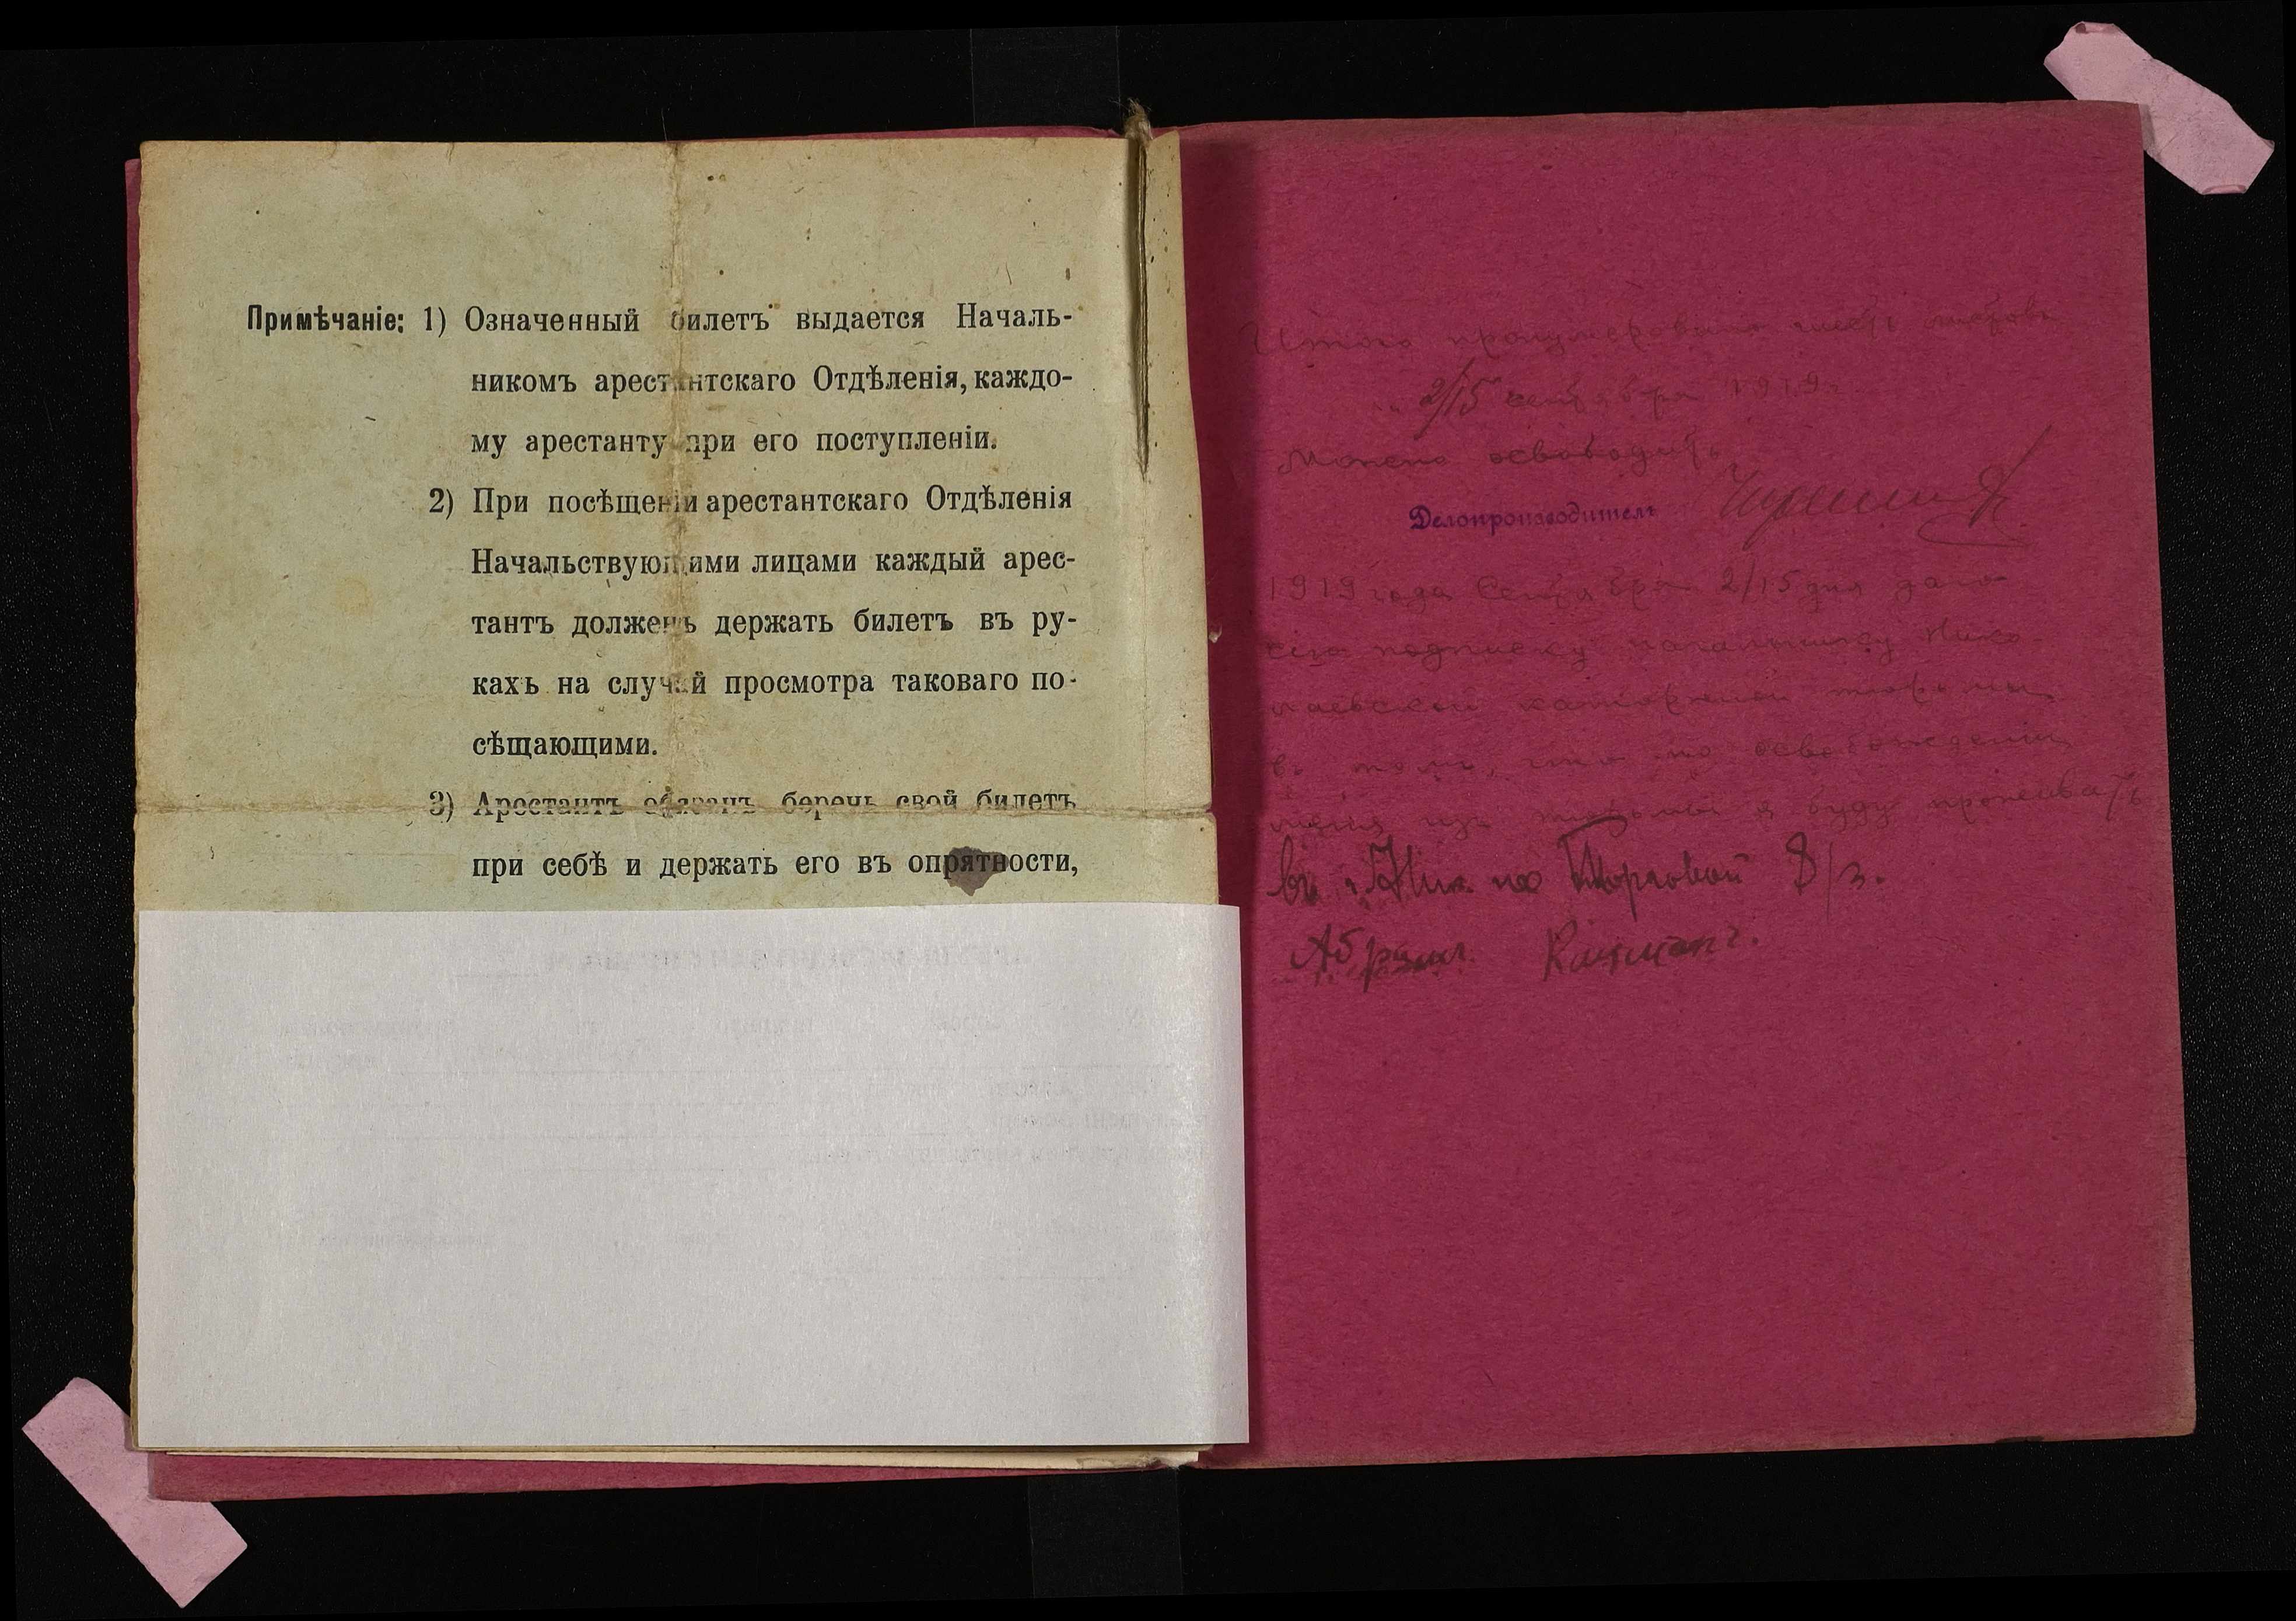 Примѣчаніе: 1) Означенный билетъ выдается Началь-
никомъ арестантскаго Отдѣленія, каждо-
му арестанту при его поступленіи.
2) При посѣщеніи арестантскаго Отдѣленія
Начальствующими лицами каждый арес-
тантъ долженъ держать билетъ въ ру-
кахъ на случай просмотра таковаго по-
сѣщающими.
3) Арестантъ обязанъ беречь свой билетъ
при себѣ и держать его въ опрятности,
Итого пронумеровано шесть листовъ
2/15 сентября 1919 г.
Можно освободить
Делопроизводитель
1919 года Сентября 2/15 дня дано
сею подписку начальнику Нико-
лаевской каторжной тюрьмы
въ томъ, что по освобождении
меня изъ тюрьмы я буду проживать
въ г. Ник по Торговой 8/3.
Абрам